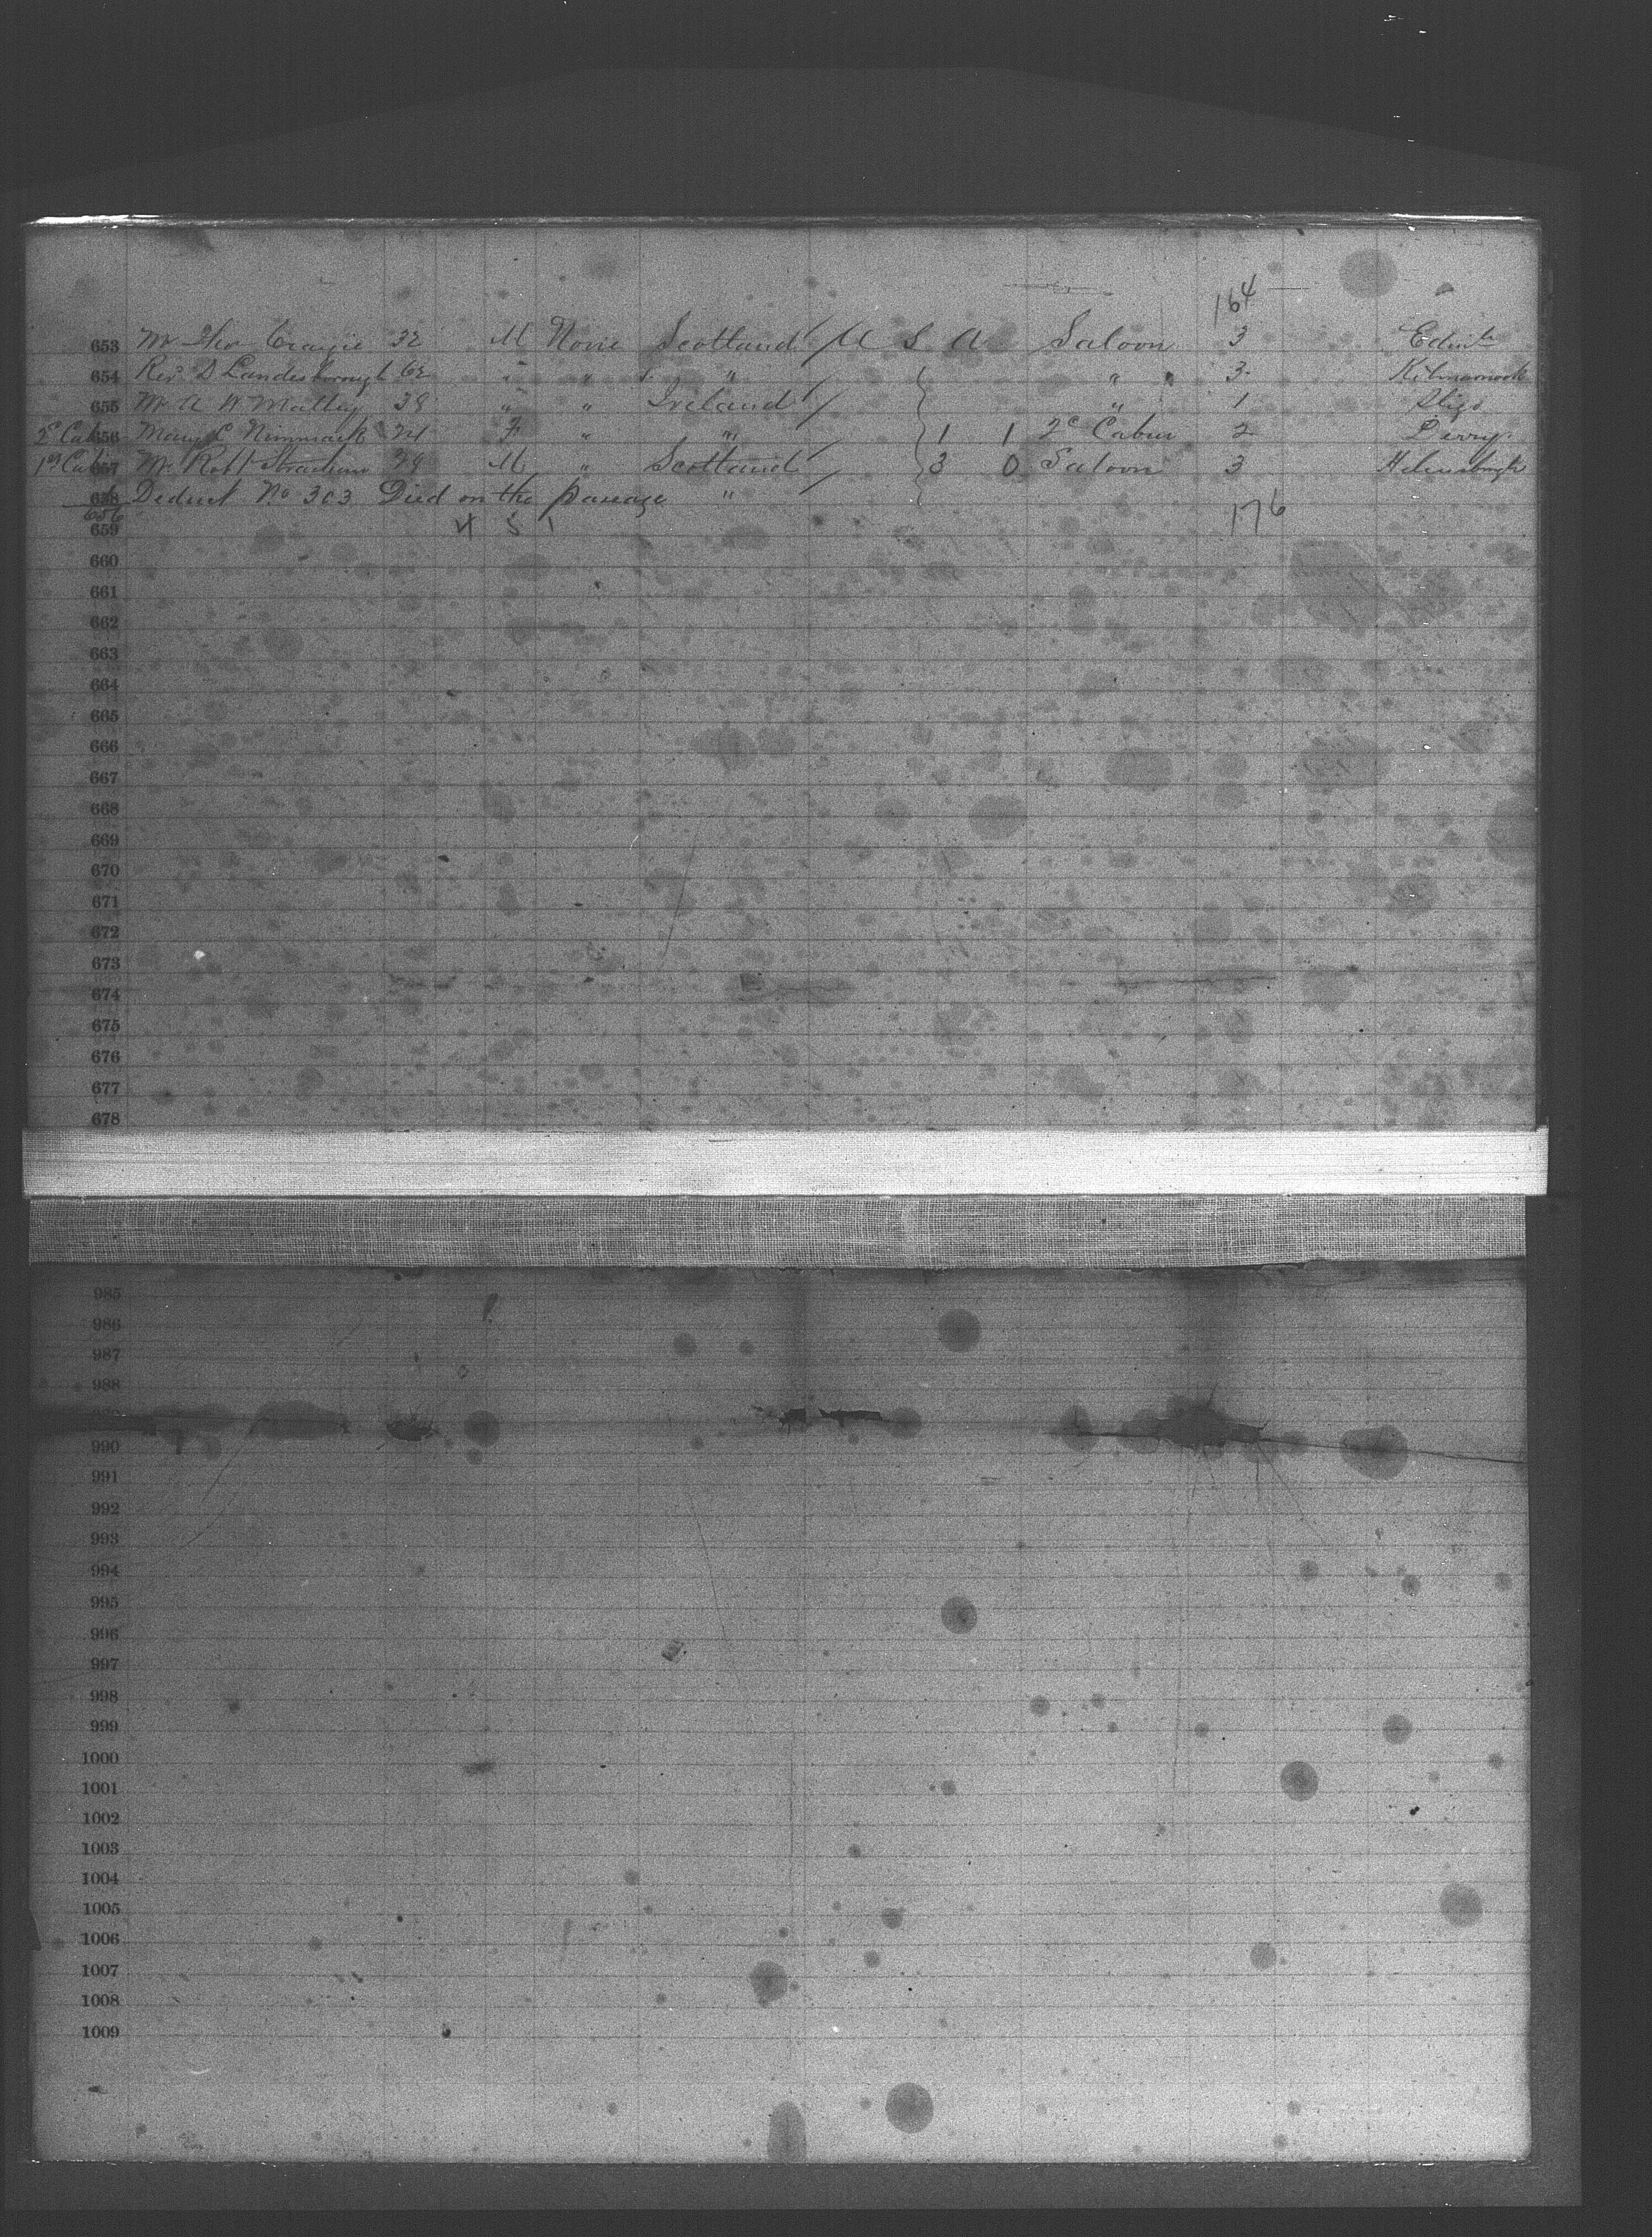 164
653 Mr Thos Craigie 32 M None Scotland / U S A Saloon 3 Edinbh
654 Rev. D Landesborough 62 " " " / " 3 Kilmarnock
655 Mr A W Malley 38 " " Ireland / " 1 Sligo
2d Cabin 656 Mary C Nimmack 24 F " " 1 1 2c Cabin 2 Derry
1st Cabin 657 Mr Robt Strachan 38 M " Scotland / 3 0 Saloon 3 Helensburgh
658 Deduct No 303 Died on the passage "
656
659 4 5 1 176
660
661
662
663
664
665
666
667
668
669
670
671
672
673
674
675
676
677
678
985
986
987
988
990
991
992
993
994
995
996
997
998
999
1000
1001
1002
1003
1004
1005
1006
1007
1008
1009